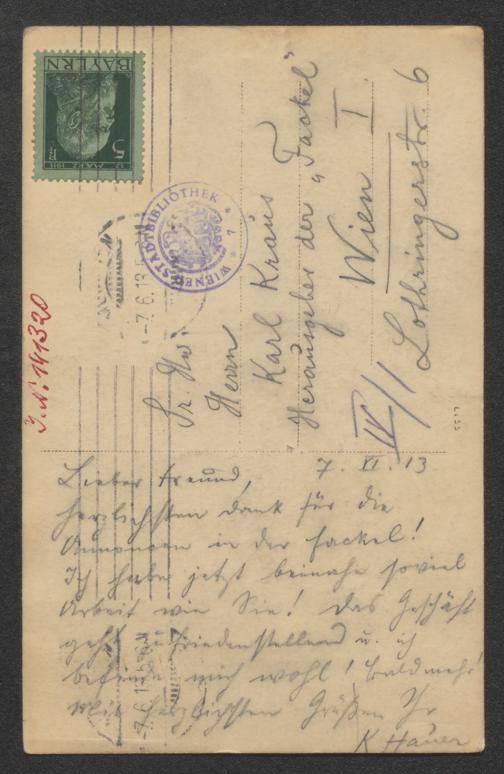 BAYERN
5 Pf
12. MÄRZ 1911
WIENER STADTBIBLIOTHEK
7
-7.6.13
J.N. 141320
Sr. Hw.
Herrn
Karl Kraus
Herausgeber der „Fackel"
Wien I
Lothringerstr. 6
IV/1
7. VI. 13
Lieber Freund,
herzlichsten Dank für die
Annoncen in der Fackel!
Ich habe jetzt beinahe soviel
Arbeit wie Sie! Das Geschäft
geht zufriedenstellend u. ich
befinde mich wohl! Bald mehr!
Mit herzlichsten Grüßen Ihr
K Hauer
-7.6.13